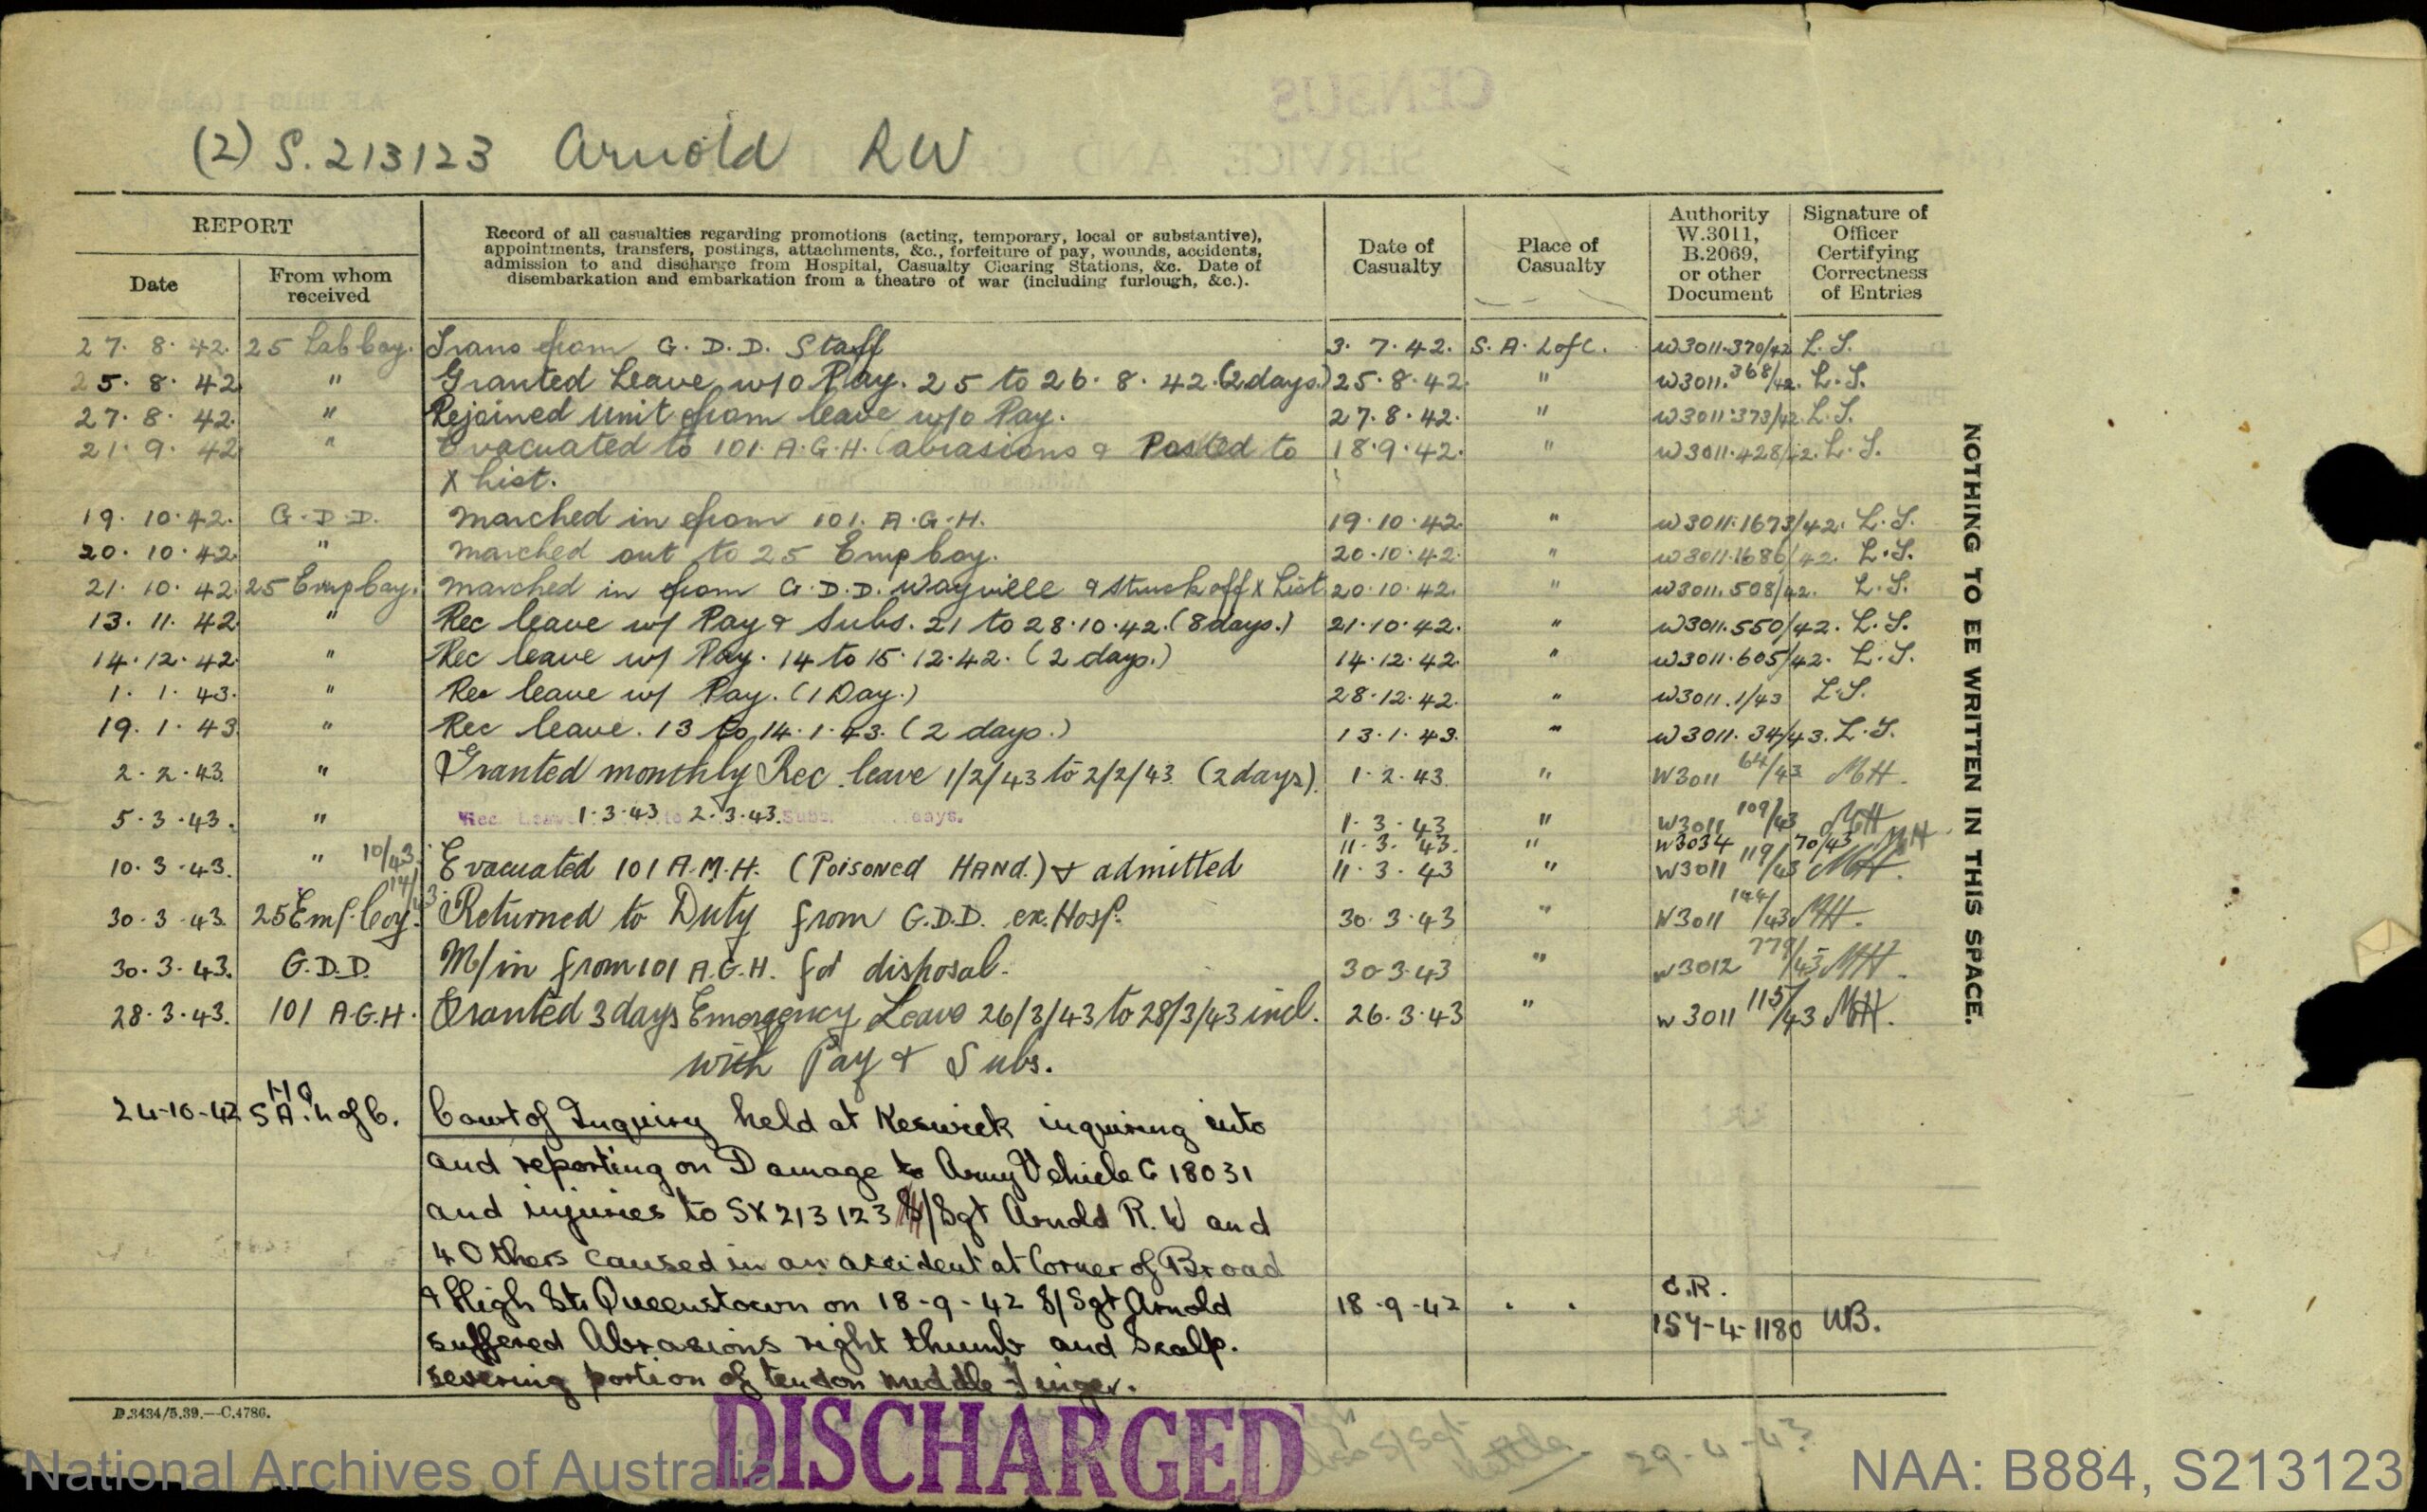 CENSUS
(2) S.213123 Arnold RW
REPORT
Date
From whom received
Record of all casualties regarding promotions (acting, temporary, local or substantive),
appointments, transfers, postings, attachments, &c., forfeiture of pay, wounds, accidents,
admission to and discharge from Hospital, Casualty Clearing Stations, &c. Date of
disembarkation and embarkation from a theatre of war (including furlough, &c.).
Date of Casualty
Place of Casualty
Authority W.3011, B.2069, or other Document
Signature of Officer Certifying Correctness of Entries
27. 8. 42. 25 Lab Coy. Trans from G.D.D. Staff 3. 7. 42. S.A. L of C. W3011.370/42 L.S.
25. 8. 42 " Granted Leave w/o Pay. 25 to 26. 8. 42. (2 days.) 25.8.42. " W3011.368/42. L.S.
27. 8. 42. " Rejoined Unit from leave w/o Pay. 27.8.42. " W3011.373/42. L.S.
21. 9. 42 " Evacuated to 101. A.G.H. (abrasions & Posted to 18.9.42. " W3011.428/42. L.S.
X List.
19. 10. 42. G.D.D. Marched in from 101. A.G.H. 19.10.42. " W3011.1673/42. L.S.
20. 10. 42. " Marched out to 25 Emp Coy. 20.10.42. " W3011.1686/42. L.S.
21. 10. 42. 25 Emp Coy. Marched in from G.D.D. Wayville & Struck off X List 20.10.42. " W3011.508/42. L.S.
13. 11. 42 " Rec leave w/ Pay & Subs. 21 to 28.10.42. (8 days.) 21.10.42. " W3011.550/42. L.S.
14. 12. 42. " Rec leave w/ Pay. 14 to 15.12.42. (2 days.) 14.12.42. " W3011.605/42. L.S.
1. 1. 43. " Rec leave w/ Pay. (1 Day.) 28.12.42. " W3011.1/43 L.S.
19. 1. 43 " Rec leave. 13 to 14.1.43. (2 days.) 13.1.43. " W3011.34/43. L.S.
2. 2. 43. " Granted monthly Rec. leave 1/2/43 to 2/2/43 (2 days). 1.2.43. " W3011 64/43 MH.
5. 3. 43. " Rec Leave 1.3.43 to 2.3.43. Subs. days. 1.3.43 " W3011 109/43 MH
11.3.43. " W3034 70/43 MH
10. 3. 43. " 10/43. Evacuated 101 A.M.H. (Poisoned HAND.) & admitted 11.3.43 " W3011 119/43 MH.
30. 3. 43. 25 Emp. Coy. Returned to Duty from G.D.D. ex. Hosp. 30.3.43 " W3011 144/43 MH.
30. 3. 43. G.D.D. M/in from 101 A.G.H. for disposal. 30.3.43 " W3012 779/43 MH.
28. 3. 43. 101 A.G.H. Granted 3 days Emergency Leave 26/3/43 to 28/3/43 incl. 26.3.43 " W3011 115/43 MH.
with Pay & Subs.
24-10-42 HQ SA. L of C. Court of Inquiry held at Keswick inquiring into
and reporting on Damage to Army Vehicle C 18031
and injuries to SX 213123 S/Sgt Arnold R.W and
4 Others caused in an accident at Corner of Broad
& High Sts Queenstown on 18-9-42 S/Sgt Arnold 18-9-42 " " C.R. 154-4-1180 WB.
suffered Abrasions right thumb and Scalp.
severing portion of tendon middle finger.
NOTHING TO BE WRITTEN IN THIS SPACE.
D.3434/5.39.—C.4786.
DISCHARGED
S/Sgt
29-4-43
National Archives of Australia
NAA: B884, S213123